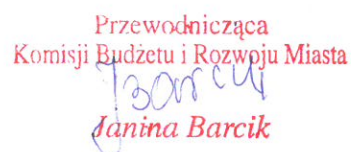 Przewodnicząca
Komisji Budżetu i Rozwoju Miasta
JBarcik
Janina Barcik